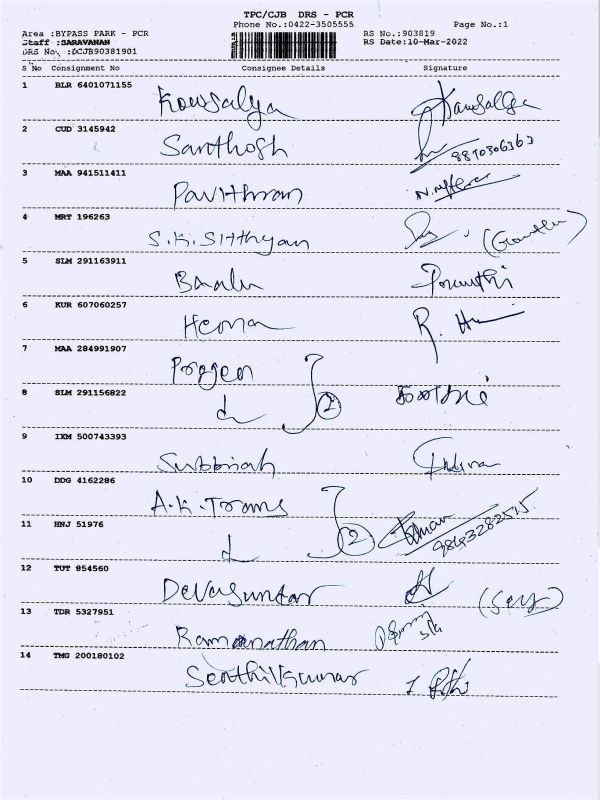 TPC/CJB DRS - PCR
Phone No.:0422-3505555
Page No.:1
Area :BYPASS PARK - PCR
RS No.:903819
Staff :SARAVANAN
RS Date:10-Mar-2022
DRS No. :DCJB90381901
S No Consignment No Consignee Details Signature
1 BLR 6401071155 Kowsalya Kowsalya
2 CUD 3145942 Santhosh 8870306363
3 MAA 941511411 Pavithran
4 MRT 196263 S.K. Sitthyan
5 SLM 291163911 Baalu
6 KUR 607060257 Hema R. H
7 MAA 284991907 Pragen
8 SLM 291156822 2
9 IXM 500743393 Subbiah
10 DDG 4162286 A.K. Trans
11 HNJ 51976 2 9843282515
12 TUT 854560 Devasundar
13 TDR 5327951 Ramanathan
14 TMG 200180102 Senthilkumar